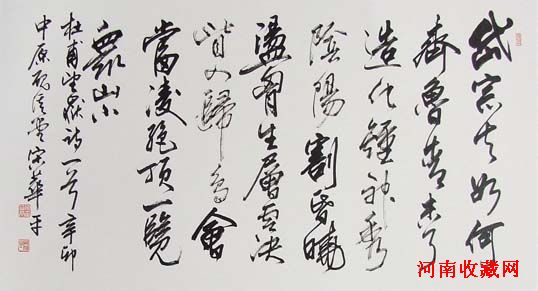 岱宗夫如何
齊魯青未了
造化鍾神秀
陰陽割昏曉
盪胷生層雲決
眥入歸鳥會
當凌絕頂一覽
衆山小
杜甫望嶽詩一首辛卯
中原堂宋華平
河南收藏网